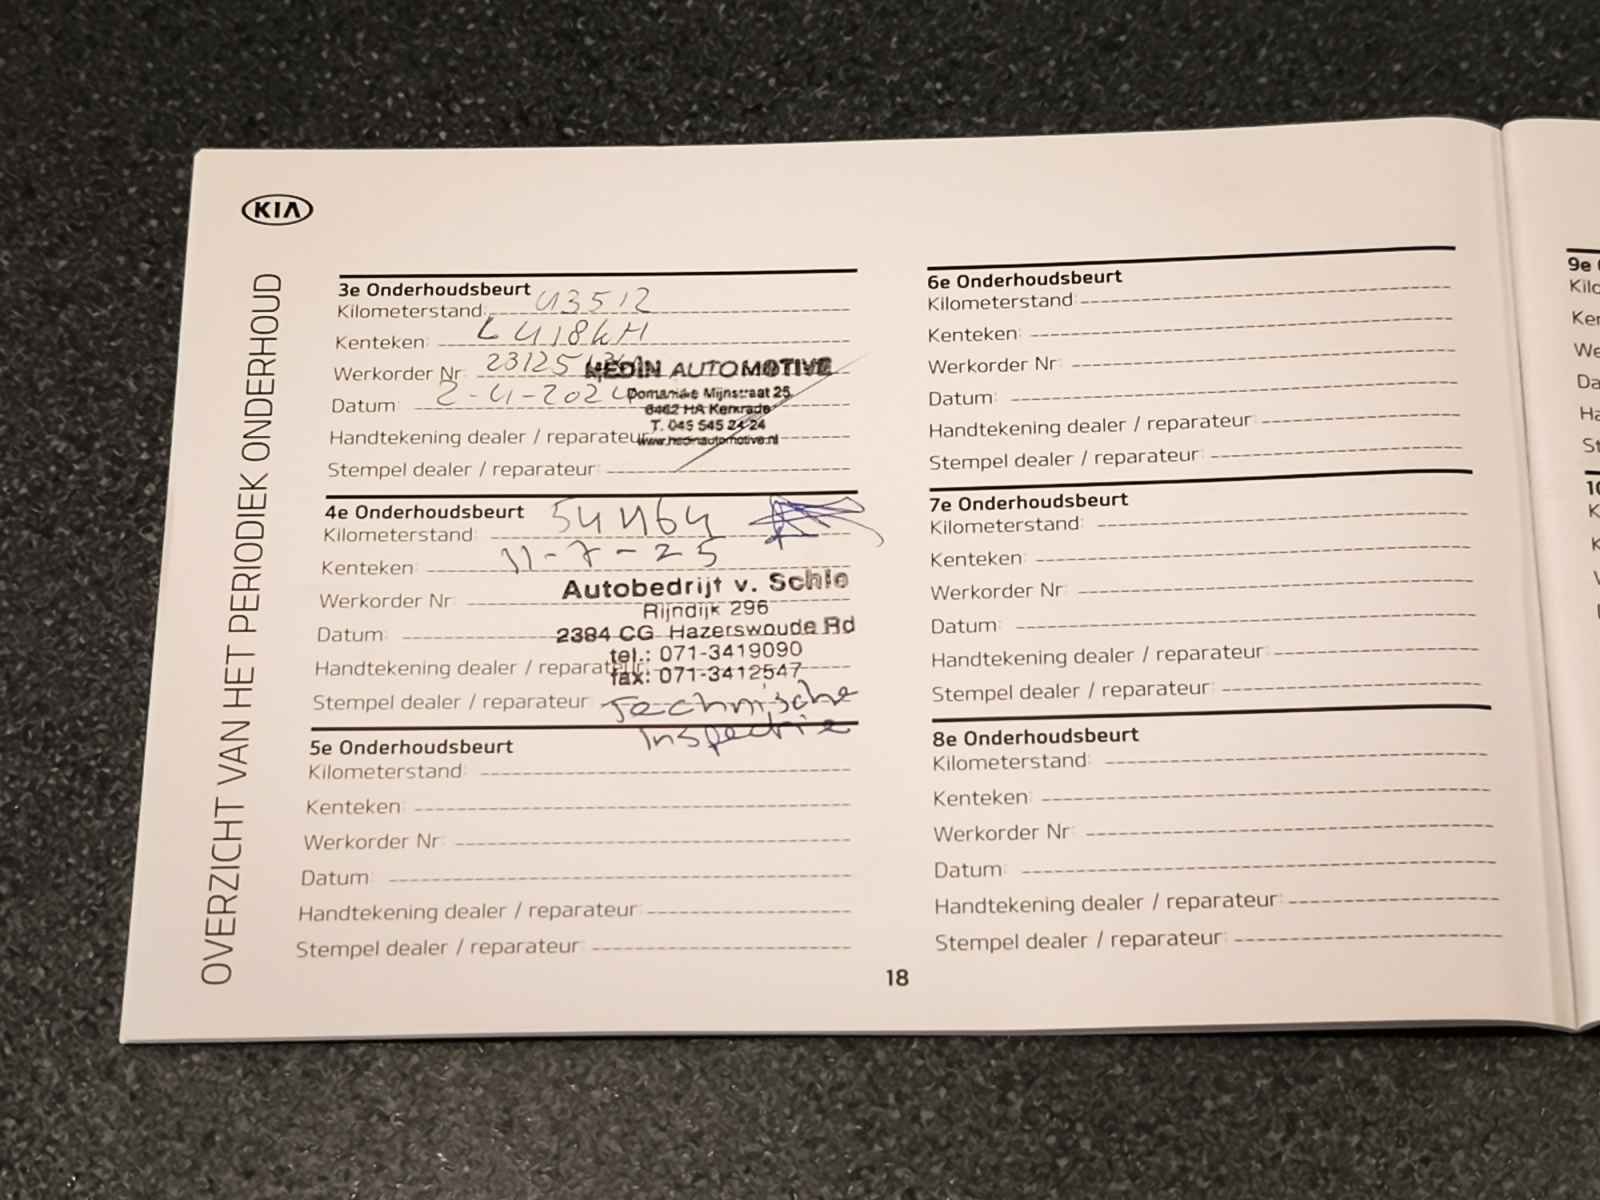 KIA
OVERZICHT VAN HET PERIODIEK ONDERHOUD
3e Onderhoudsbeurt
Kilometerstand: 43512
Kenteken: L418KH
Werkorder Nr:
Datum: 2-4-2024
Handtekening dealer / reparateur:
Stempel dealer / reparateur:
HEDIN AUTOMOTIVE
Domaniale Mijnstraat 25
6462 HA Kerkrade
T. 045 545 24 24
www.hedinautomotive.nl
4e Onderhoudsbeurt
Kilometerstand: 54464
Kenteken: 11-7-25
Werkorder Nr:
Datum:
Handtekening dealer / reparateur:
Stempel dealer / reparateur:
Autobedrijf v. Schie
Rijndijk 296
2394 CG Hazerswoude Rd
tel.: 071-3419090
fax: 071-3412547
Technische
Inspectie
5e Onderhoudsbeurt
Kilometerstand:
Kenteken:
Werkorder Nr:
Datum:
Handtekening dealer / reparateur:
Stempel dealer / reparateur:
6e Onderhoudsbeurt
Kilometerstand:
Kenteken:
Werkorder Nr:
Datum:
Handtekening dealer / reparateur:
Stempel dealer / reparateur:
7e Onderhoudsbeurt
Kilometerstand:
Kenteken:
Werkorder Nr:
Datum:
Handtekening dealer / reparateur:
Stempel dealer / reparateur:
8e Onderhoudsbeurt
Kilometerstand:
Kenteken:
Werkorder Nr:
Datum:
Handtekening dealer / reparateur:
Stempel dealer / reparateur:
18
9e